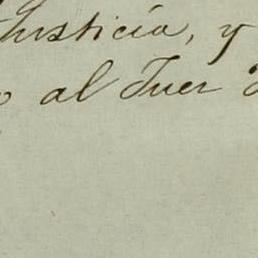 Justicia, y
al Juez